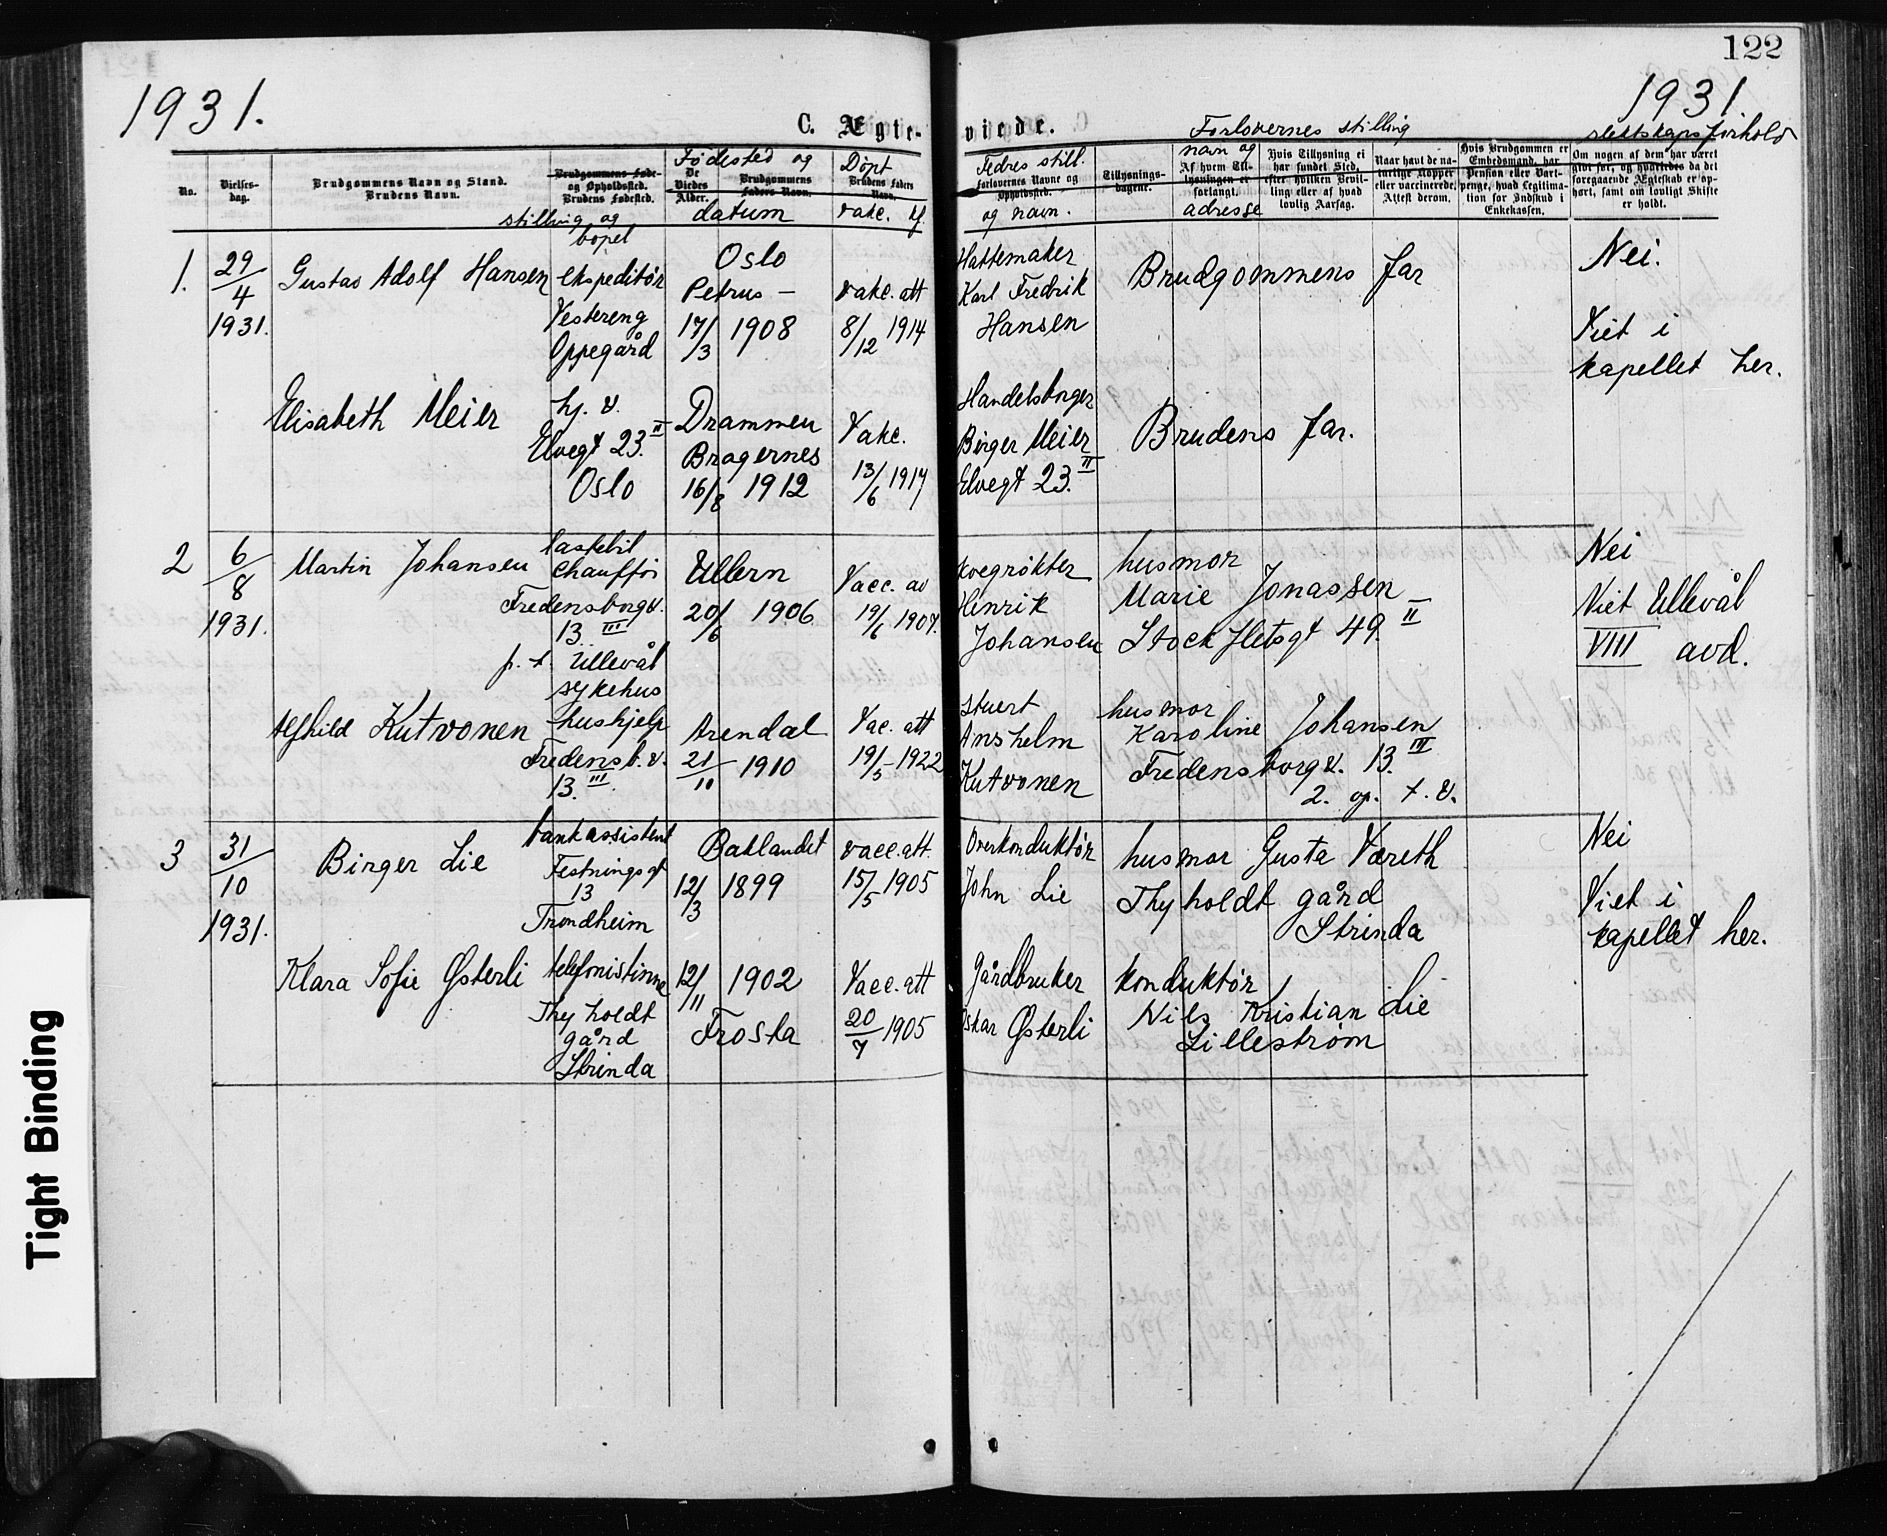 122
1931.
1931.
C. Ægte-
viede.
Forlovernes stilling
slektskapsforhold
No.
Vielses-dag.
Brudgommens Navn og Stand.
Brudens Navn.
Brudgommens Føde- og Opholdssted.
Brudens Fødested.
stilling og
bopel
Fødested og
De Viedes Alder.
Brudgommens Faders Navn.
datum
Døpt
Brudens Faders Navn.
vakc.
Fedres still.
Forlovernes Navne og Opholdssted.
og navn.
Tillysnings-dagene.
navn og
Af hvem Till-lysningen er forlangt.
adresse
Hvis Tillysning ei har fundet Sted, efter hvilken Bevil-ling eller af hvad lovlig Aarsag.
Naar havt de na-turlige Kopper eller vaccinerede, Attest derom.
Hvis Brudgommen er Embedsmand, har Pension eller Vart-penge, hvad Legitima-tion for Indskud i Enkekassen.
Om nogen af dem har været gift før, og hvorledes da det foregaaende Ægteskab er op-hørt, samt om lovligt Skifte er holdt.
1.
29/4
1931.
Gustav Adolf Hansen
ekspeditør
Vestereng
Oppegård
Oslo
Petrus -
17/3 1908
vakc. att
8/12 1914
Hattemaker
Karl Fredrik
Hansen
Brudgommens far
Nei.
Viet i
kapellet her.
Elisabeth Meier
hj. v.
Elvegt 23. II
Oslo
Drammen
Bragernes
16/8 1912
Vakc.
13/6 1917
Handelsborger
Birger Meier
Elvegt 23. II
Brudens far.
2
6/8
1931.
Martin Johansen
lastebil
chauffør
Fredensborgv.
13. III
p. t. Ullevål
sykehus
Ullern
20/6 1906
Vacc. av
19/6 1907.
kvegrøkter
Henrik
Johansen
husmor
Marie Jonassen
Stockfletsgt 49. II
Nei
Viet Ullevål
VIII avd.
Alfhild Kutvonen
hushjelp
Fredensb. v.
13. III
Arendal
21/11 1910
Vac. att
19/5 - 1922
Stuert
Anshelm
Kutvonen
husmor
Karoline Johansen
Fredensborgv. 13. III
2. op. t. v.
3
31/10
1931.
Birger Lie
bankassistent
Festningsgt
13
Trondheim
Baklandet
12/3 1899
vacc. att.
15/5 1905
Overkonduktør
John Lie
husmor Gusta Væreth
Thyholdt gård
Strinda
Nei
Viet i
kapellet her.
Klara Sofie Østerli
telefonistinne
Thyholdt
gård
Strinda
12/11 1902
Frosta
Vacc. att
20/7 1905
Gårdbruker
Oskar Østerli
konduktør
Nils Kristian Lie
Lillestrøm
Tight Binding